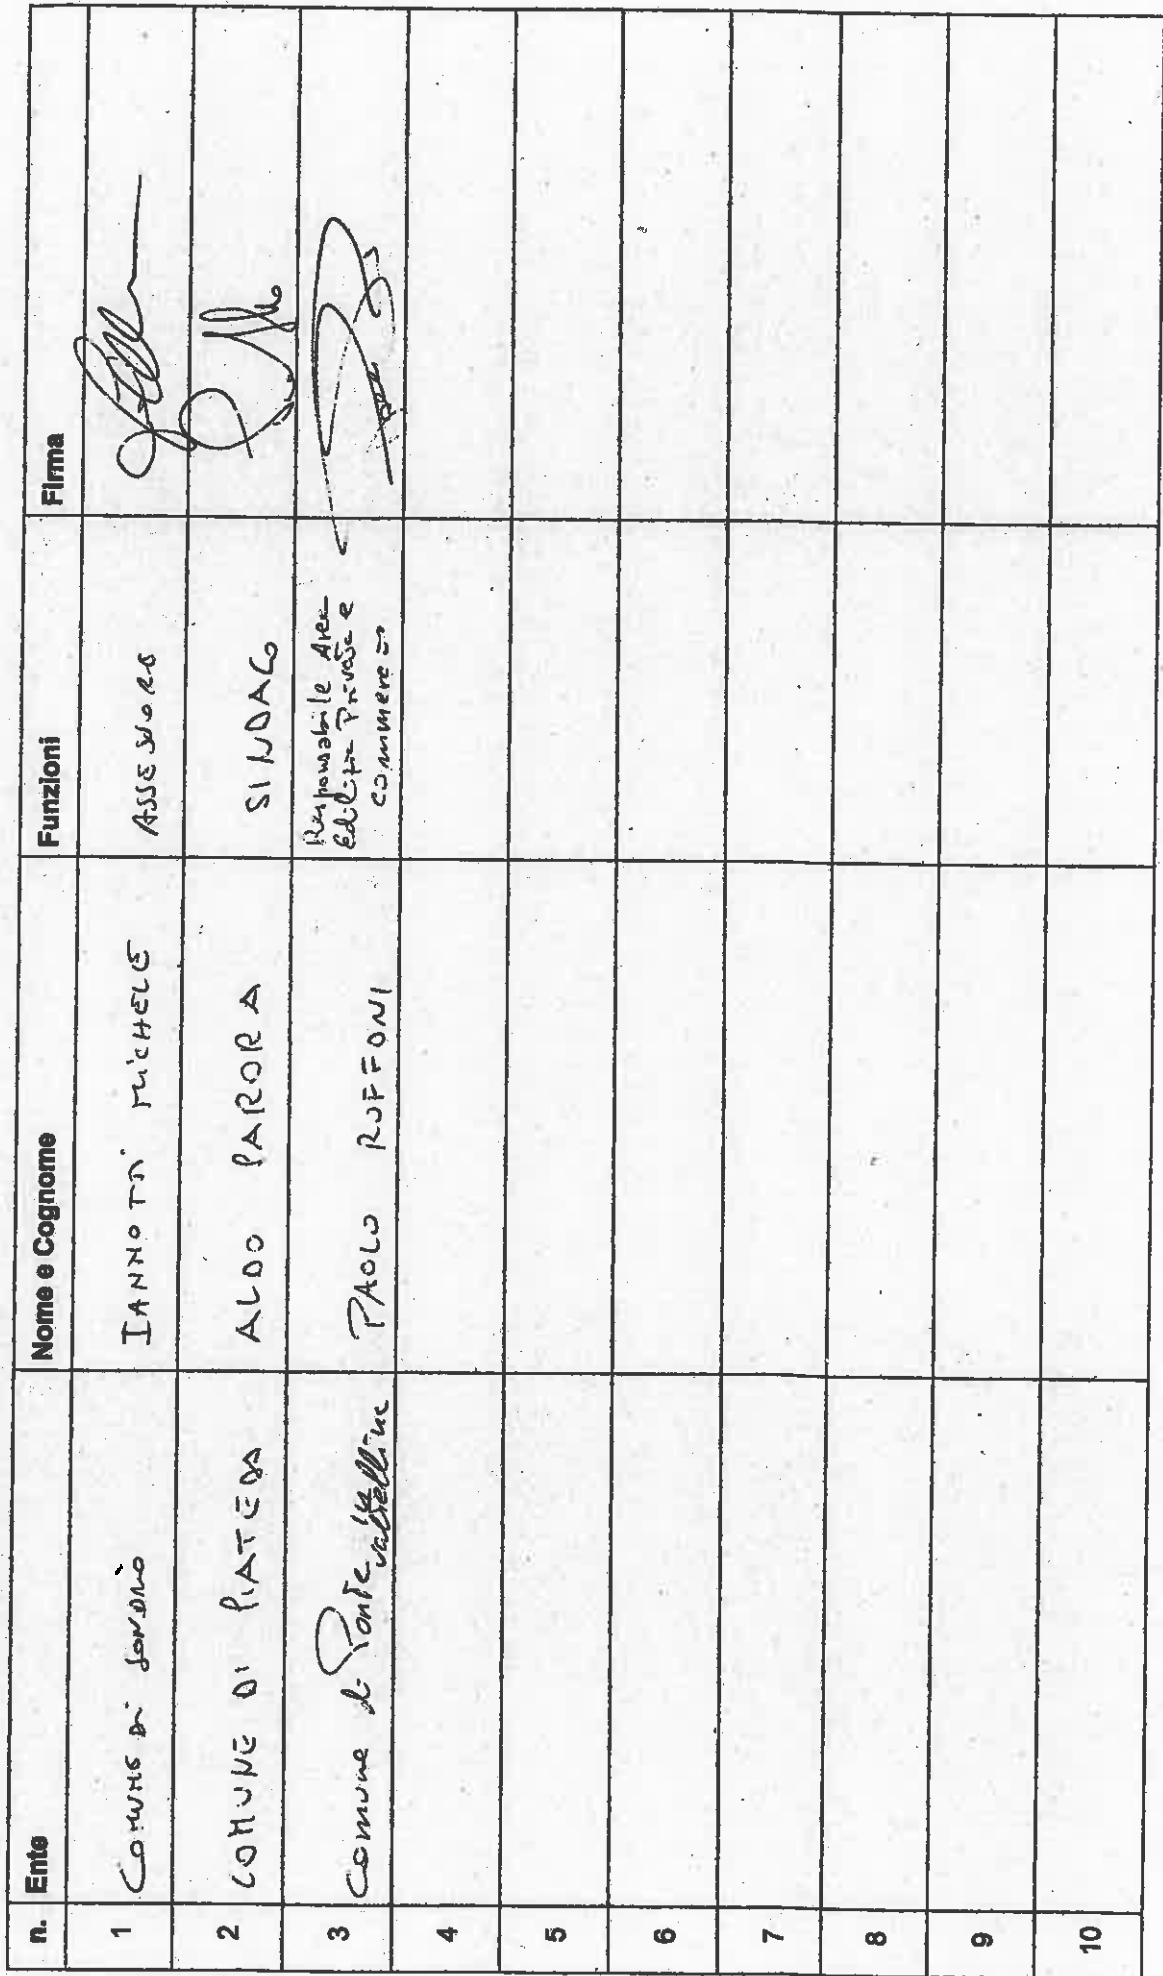 n. Ente Nome e Cognome Funzioni Firma
1 COMUNE DI SONDRIO IANNOTTI MICHELE ASSESSORE
2 COMUNE DI PIATEDA ALDO PARORA SINDACO
3 Comune di Ponte in Valtellina PAOLO RUFFONI Responsabile Area
Edilizia Privata e
commercio
4
5
6
7
8
9
10